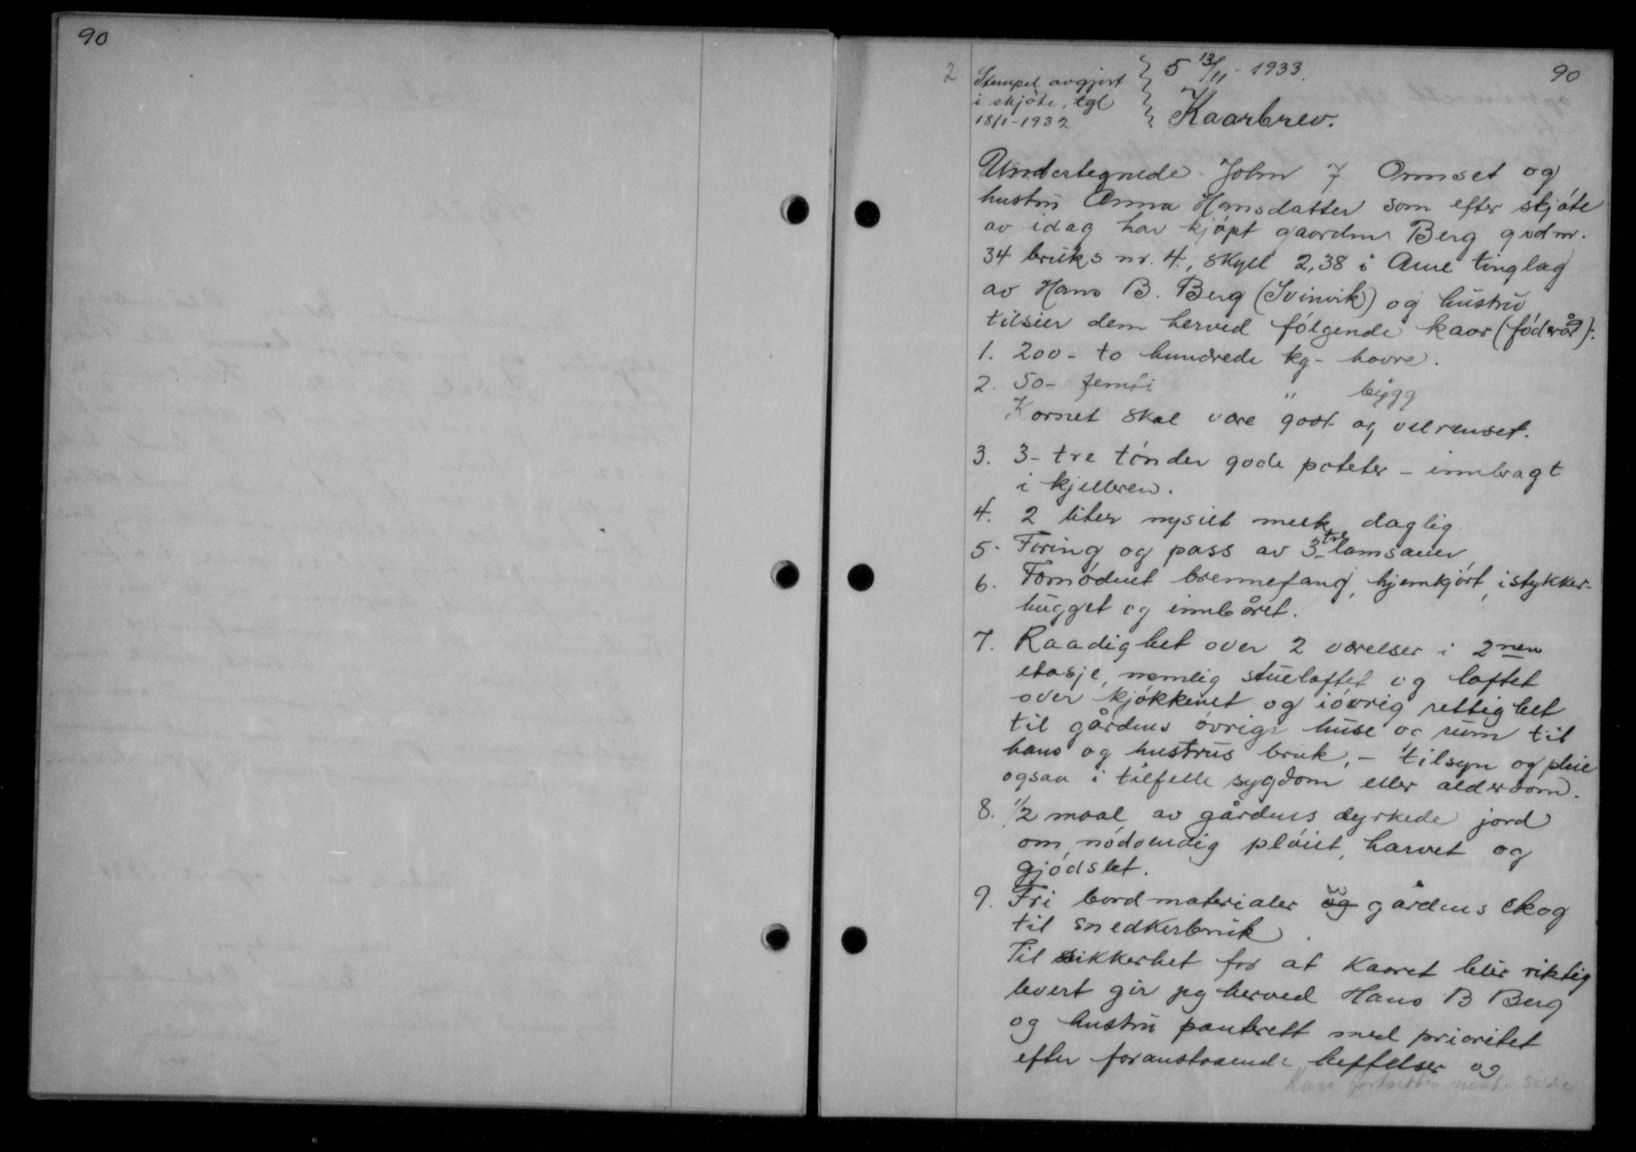 90
2
Stempel avgjort
i skjøte, tgl
18/1-1932
5 13/11-1933.
90
Kaarbrev.
Undertegnede John J Ormset og
hustru Anna Hansdatter som efter skjøte
av idag har kjøpt gaarden Berg grdnr.
34 bruks nr. 4., skyll 2,38 i Aure tinglag
av Hans B. Berg (Svinvik) og hustru
tilsier dem herved følgende kaar (føderåd):
1. 200 - to hundrede kg - havre.
2. 50 - femti " bygg
Kornet skal være godt og velrenset.
3. 3 - tre tønder gode poteter - innbragt
i kjelleren.
4. 2 liter nysilt melk daglig.
5. Foring og pass av 3 - tre lamsauer,
6. Fornødent brennefang, hjemkjørt, istykker-
hugget og innbåret.
7. Raadighet over 2 værelser i 2nen
etasje, nemlig stueloftet og loftet
over kjøkkenet og iøvrig rettighet
til gårdens øvrige huse og rum til
hans og hustrus bruk, - tilsyn og pleie
ogsaa i tilfelle sygdom eller alderdom.
8. 1/2 maal av gårdens dyrkede jord
om nødvendig pløiet, harvet og
gjødslet.
9. Fri bordmaterialer og av gårdens skog
til snedkerbruk.
Til sikkerhet for at Kaaret blir riktig
levert gir jeg herved Hans B Berg
og hustru panterett med prioritet
efter foranstaaende heftelser og
Kan fortsettes neste side